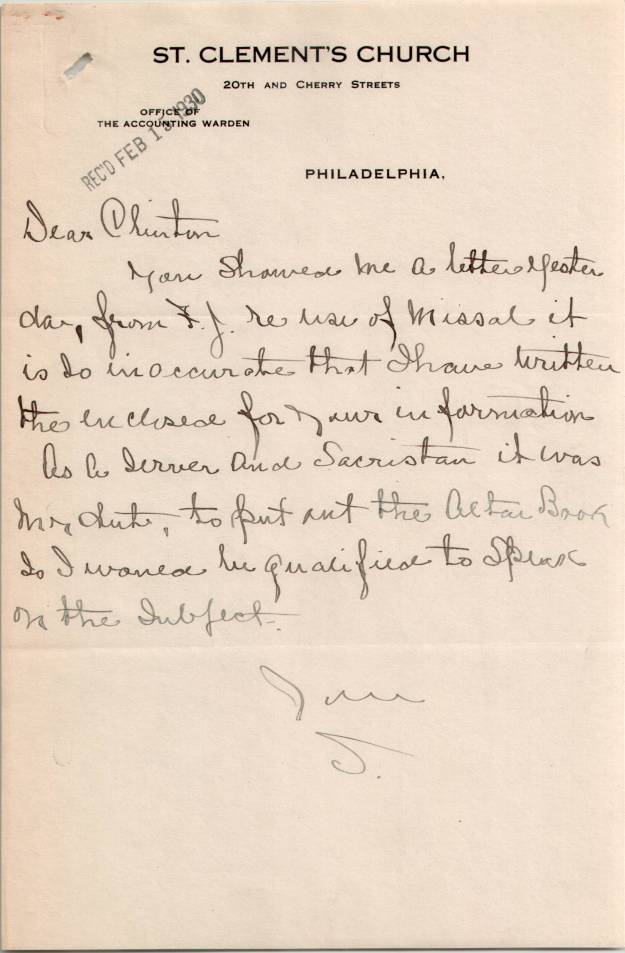 ST. CLEMENT'S CHURCH
20TH AND CHERRY STREETS
OFFICE OF
THE ACCOUNTING WARDEN
REC'D FEB 15 1930
PHILADELPHIA,
Dear
You showed me a letter yester
day, from F. J. re use of Missal it
is so inaccurate that I have written
the enclosed for your information
As a Server and Sacristan it was
my duty, to put out the Altar Book
so I would be qualified to speak
on the subject.
J.